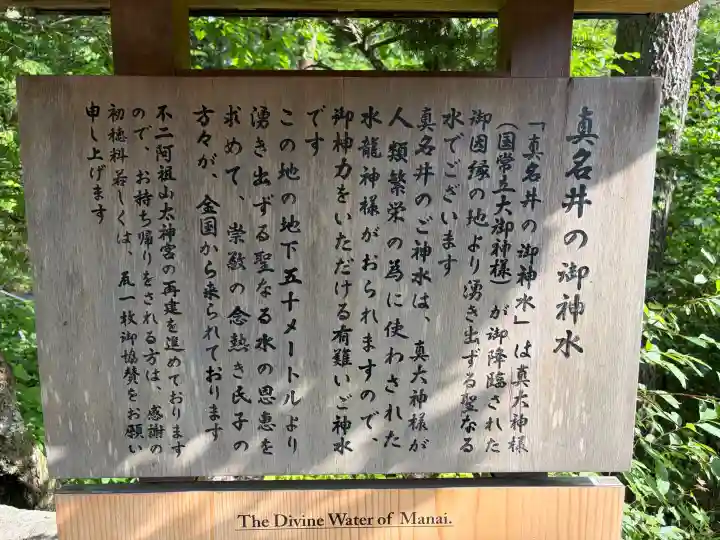 真名井の御神水
「真名井の御神水」は真大神様
（国常立大御神様）が御降臨された
御因縁の地より湧き出ずる聖なる
水でございます
真名井のご神水は、真大神様が
人類繁栄の為に使わされた
水龍神様がおられますので、
御神力をいただける有難いご神水
です
この地の地下五十メートルより
湧き出ずる聖なる水の恩恵を
求めて、崇敬の念熱き民子の
方々が、全国から来られております
不二阿祖山太神宮の再建を進めております
ので、お持ち帰りをされる方は、感謝の
初穂料若しくは、瓦一枚御協賛をお願い
申し上げます
The Divine Water of Manai.